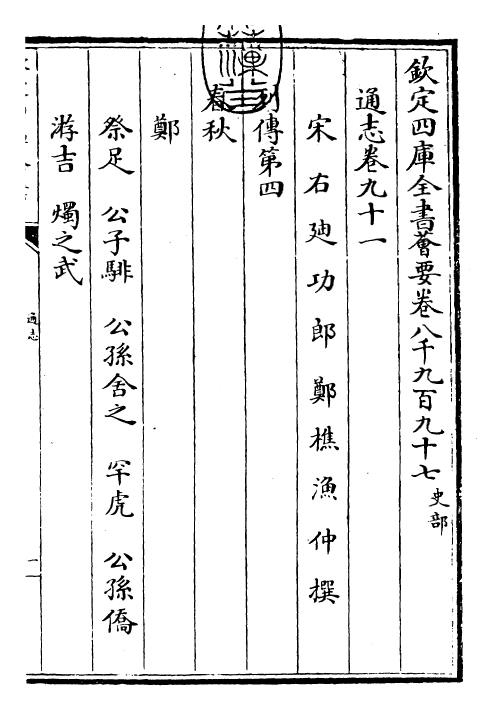 欽定四庫全書薈要卷八千九百九十七史部
通志卷九十一
宋右廸功郎鄭樵漁仲撰
列傳第四
春秋
鄭
祭足 公子騑 公孫舍之 罕虎 公孫僑
游吉 燭之武
通志
一